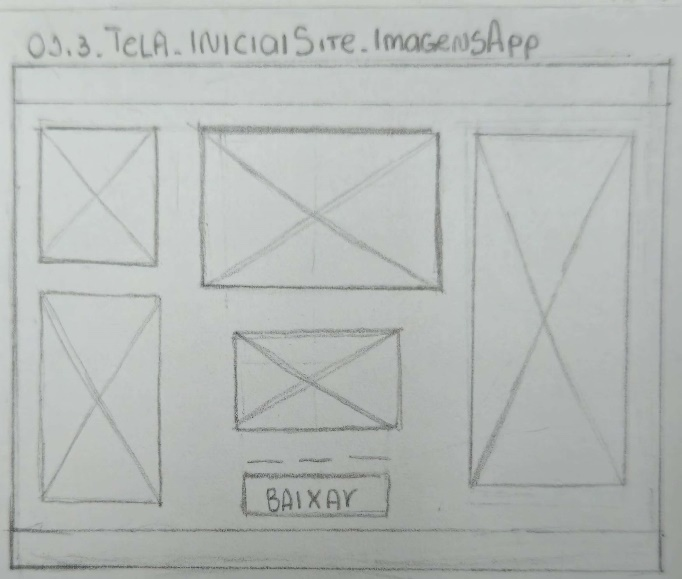 09.3.TELA_INICIALSITE_IMAGENSAPP
BAIXAR